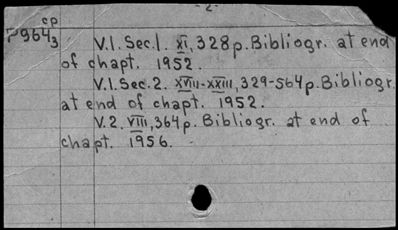 -2-
cp
P964
3
V.1. Sec.1. XI, 328p. Bibliogr. at end
of chapt. 1952.
V.1. Sec.2. XVIII-XXIII, 329-564p. Bibliogr.
at end of chapt. 1952.
V.2. VIII, 364p. Bibliogr. at end of
chapt. 1956.